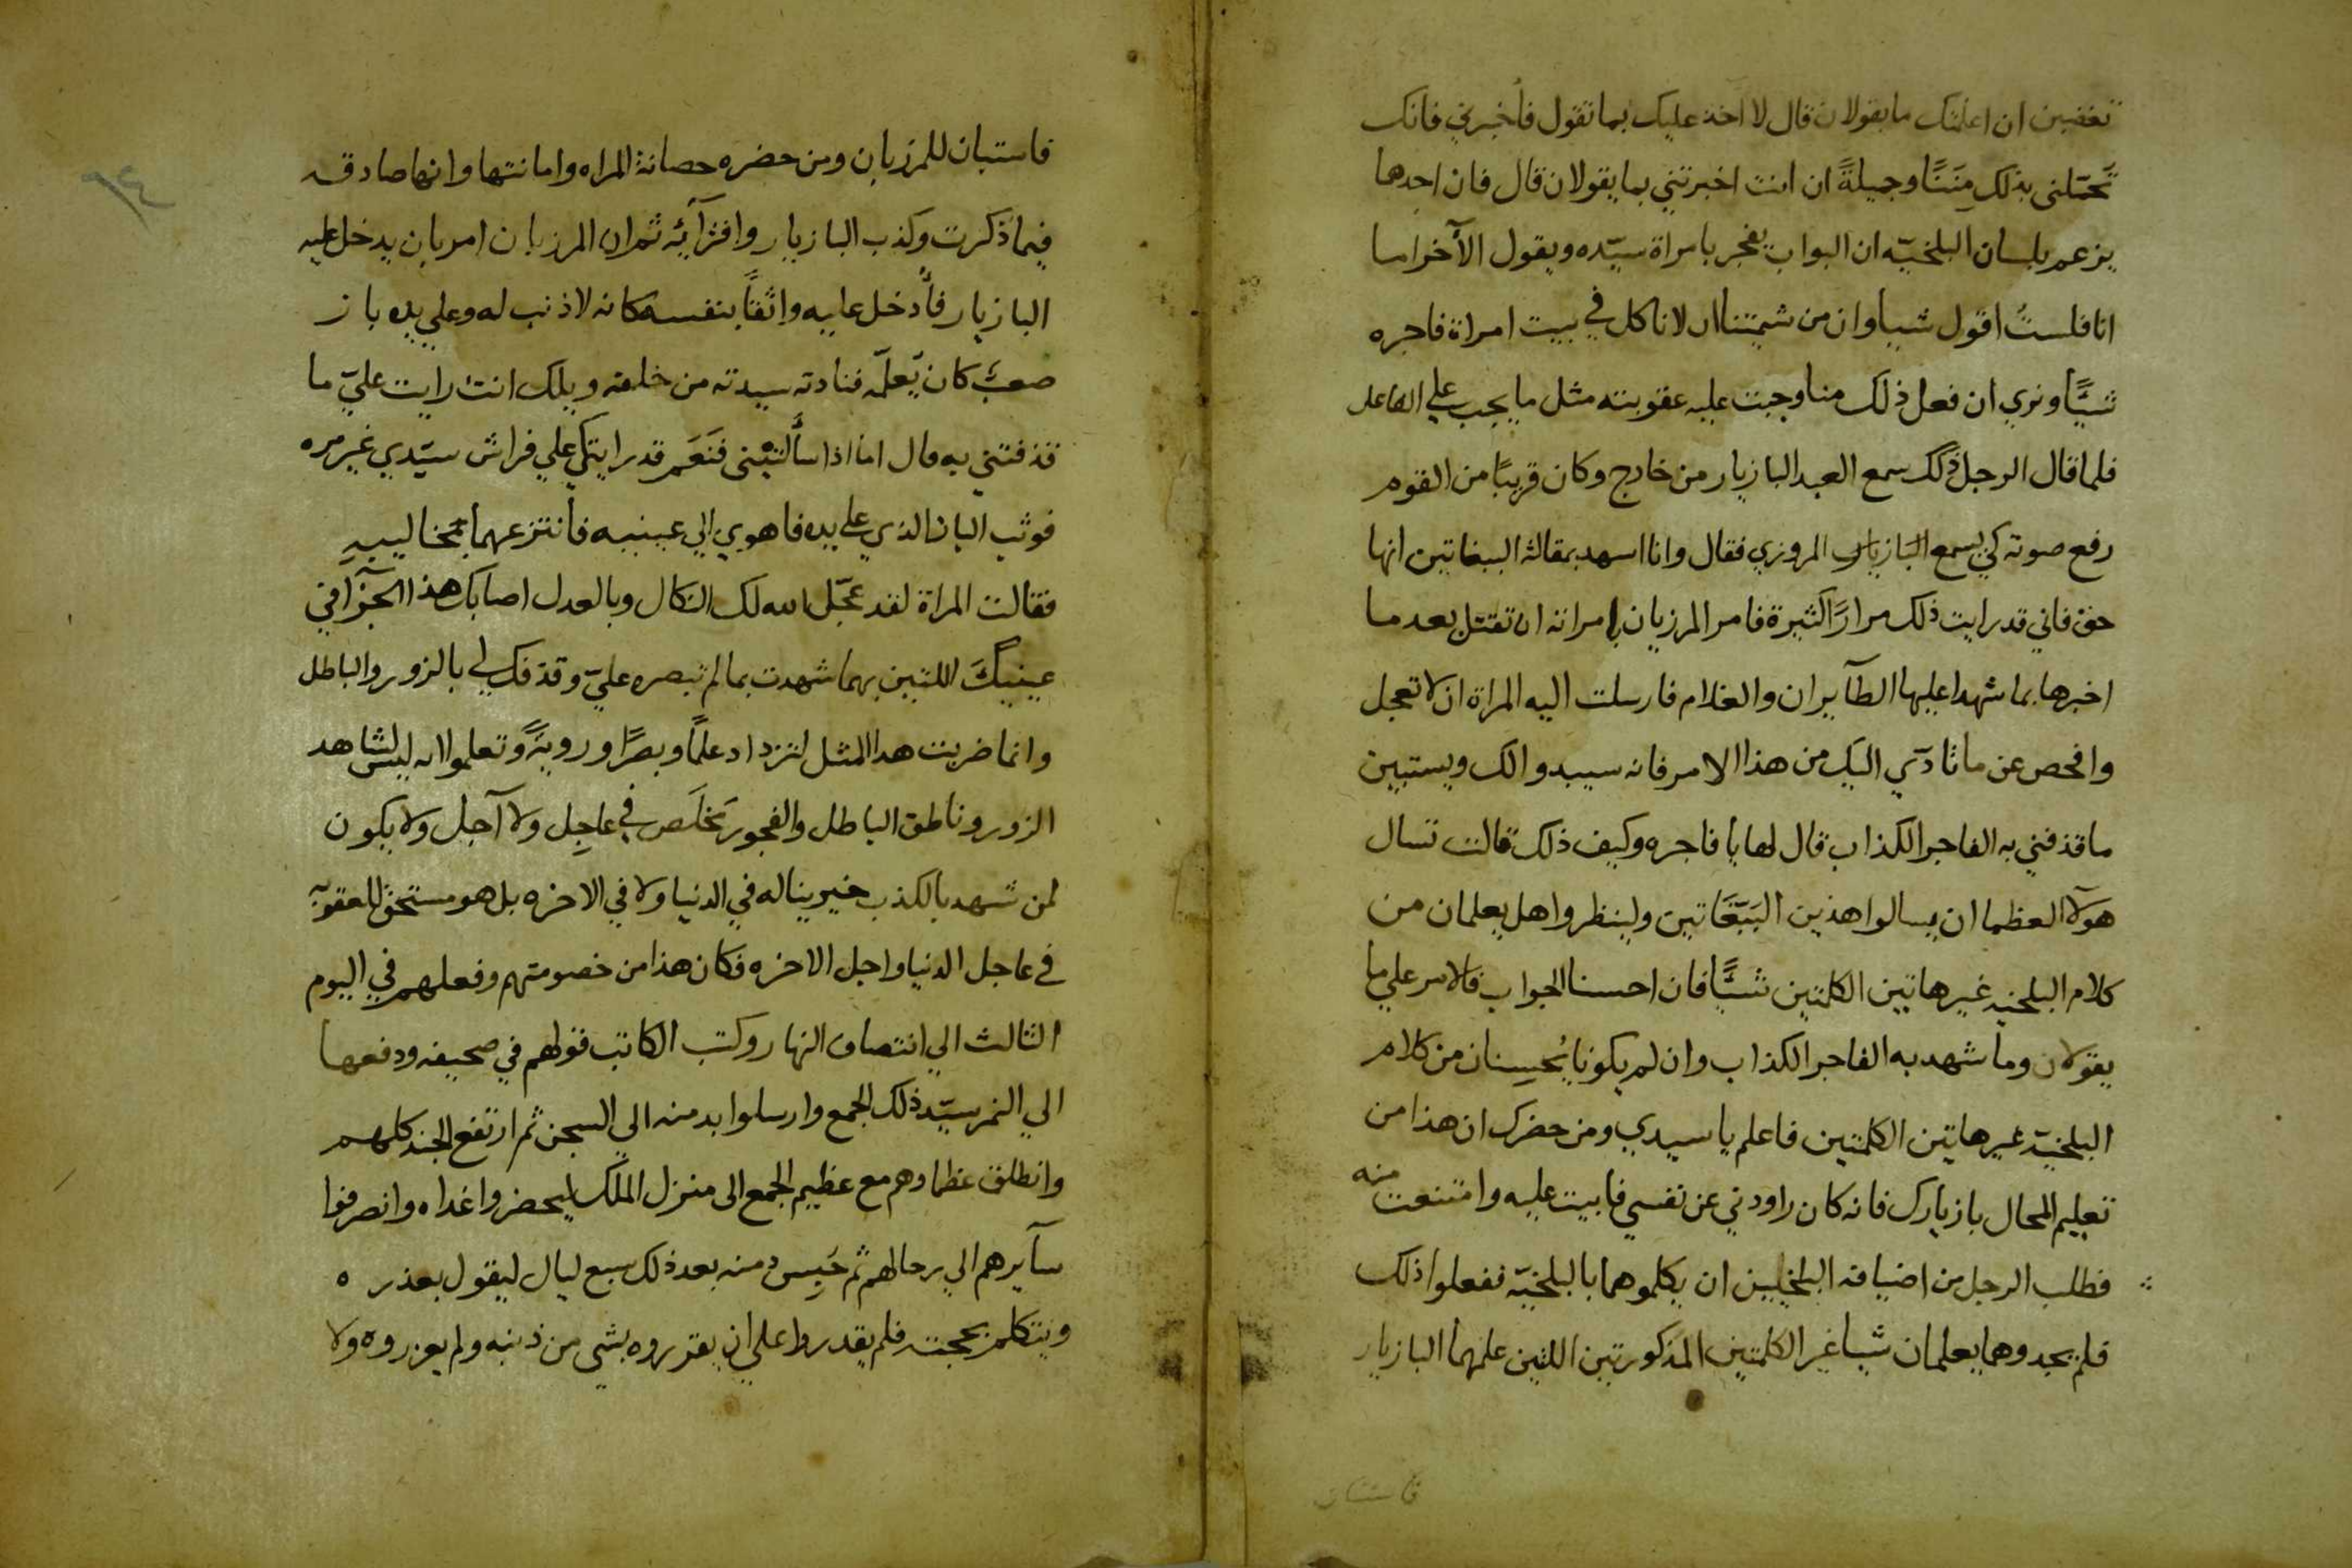 تغضبن ان اعلمتك ما يقولان قال لا آخذ عليك بما تقول فأخبرني فانك
تحمّلني بذلك مِنَنًا وجميلةً ان انت اخبرتني بما يقولان قال فان احدهما
يزعم بلسان البلخيّه ان البواب يفجر بامراة سيّده ويقول الآخر اما
انا فلستُ اقول شيا وان من شيمتنا ان لا ناكل في بيت امراة فاجره
شيًّا ونري ان فعل ذلك منا وجبت عليه عقوبته مثل ما يجب علي الفاعل
فلما قال الرجل ذلك سمع العبد البازيار من خارج وكان قريبًا من القوم
رفع صوته كي يسمع البازيار المروزي فقال وانا اسهد بمقالة الببغاتين انها
حق فاني قد رايت ذلك مرارًا كثيرة فامر المرزبان بامراته ان تقتل بعد ما
اخبرها بما شهدا عليها الطآيران والغلام فارسلت اليه المراة ان لا تعجل
وافحص عن ما تادّي اليك من هذا الامر فانه سيبدوا لك ويستبين
ما قذفني به الفاجر الكذاب قال لها يا فاجره وكيف ذلك قالت تسال
هولآ العظما ان يسالوا هذين البَبّغَاتين ولينظروا هل يعلمان من
كلام البلخيه غير هاتين الكلمتين شيًّا فان احسنا الجواب فالامر علي ما
يقولان وما شهد به الفاجر الكذاب وان لم يكونا يُحسِنان من كلام
البلخيّة غير هاتين الكلمتين فاعلم يا سيدي ومن حضرك ان هذا من
تعليم المحال بازيارك فانه كان راودني عن نفسي فابيت عليه وامتنعت منه
فطلب الرجل من اضيافه البلخيين ان يكلموهما بالبلخيّه ففعلوا ذلك
فلم يجدوهما يعلمان شيا غير الكلمتين المذكورتين اللتين علمهما البازيار
فاستبان
فاستبان للمرزبان ومن حضره حصانة المراه وامانتها وانها صادقه
فيما ذكرت وكذب البازيار وافترآئه ثم ان المرزبان امر بان يدخل عليه
البازيار فأُدخل عليه واثقًا بنفسه كانه لا ذنب له وعلي يده باز
صعبٌ كان يعلّمه فنادته سيدته من خلفه ويلك انت رايت عليّ ما
قذفتني به قال اما اذا سألتيني فنَعَم قد رايتكي علي فراش سيّدي غير مره
فوثب الباز الذي علي يده فاهوي الي عينيه فانتزعهما بمخاليبهِ
فقالت المراة لقد عجّل الله لك النكال وبالعدل اصابك هذا الجزآ في
عينيكَ اللتين بهما شهدت بما لم تبصره عليّ وقذفك لي بالزور والباطل
وانما ضربت هدا المثل لتزداد علمًا وبصرًا ورويةً وتعلموا انه ليس لشاهد
الزور وناطق الباطل والفجور تخلَص في عاجِل ولا آجل ولا يكون
لمن شهد بالكذب خير يناله في الدنيا ولا في الاخره بل هو مستحق للعقوبه
في عاجل الدنيا واجل الاخره فكان هذا من خصومتهم وفعلهم في اليوم
الثالث الي انتصاف النهار وكتب الكاتب قولهم في صحيفه ودفعها
الي النمر سيّد ذلك الجمع وارسلوا بدمنه الي السجن ثم ارتفع الجند كلهم
وانطلق عظماوهم مع عظيم الجمع الى منزل الملك ليحضروا غداه وانصرفوا
سآيرهم الي رحالهم ثم حَبِس دمنه بعد ذلك سبع ليال ليقول بعذره
ويتكلم بحجته فلم يقدروا علي ان يقرروه بشي من ذنبه ولم يعزروه ولا